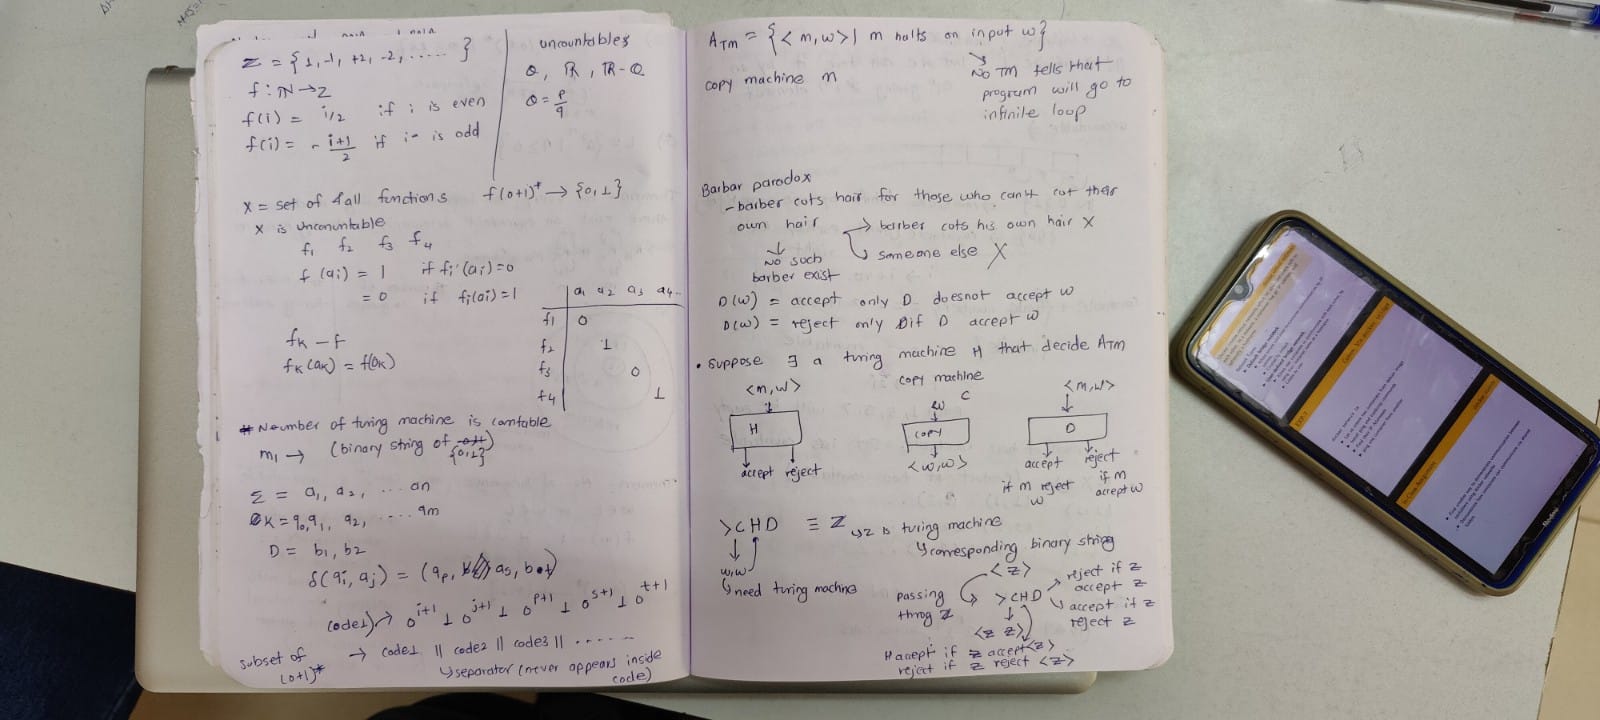 Z = {1, -1, +2, -2, ......}
f : N → Z
f(i) = i/2 if i is even
f(i) = - i+1/2 if i is odd
uncountables
Q, R, R-Q
Q = p/q
X = set of all functions f(0+1)* → {0,1}
X is uncountable
f1 f2 f3 f4
f(ai) = 1 if fi(ai)=0
= 0 if fi(ai)=1
a1 a2 a3 a4..
f1 0
f2 1
f3 0
f4 1
fk - f
fk(ak) = f(ak)
# Number of turing machine is countable
m1 → (binary string of {0,1})
Σ = a1, a2, ... an
K = q0, q1, q2, .... qm
D = b1, b2
δ(qi, aj) = (qp, as, bt)
code1 → 0^i+1 1 0^j+1 1 0^p+1 1 0^s+1 1 0^t+1
subset of (0+1)* → code1 11 code2 11 code3 11 ......
↳ separator (never appears inside code)
ATM = {<m,w> | m halts on input w}
copy machine m
↘ No TM tells that
program will go to
infinite loop
Barbar paradox
- barber cuts hair for those who can't cut their
own hair → barber cuts his own hair X
↳ someone else X
↓
No such
barber exist
D(w) = accept only D doesnot accept w
D(w) = reject only if D accept w
. suppose ∃ a turing machine H that decide ATM
<m,w>
H
accept reject
copy machine
C
w
copy
<w,w>
<m,w>
D
accept reject
if m reject w
if m accept w
>CHD ≡ Z ↳ Z is turing machine
↳ corresponding binary string
w,w
↳ need turing machine
<z>
passing
throg Z
>CHD
reject if z
accept z
accept if z
reject z
<z z>
H accept if z accept <z>
reject if z reject <z>